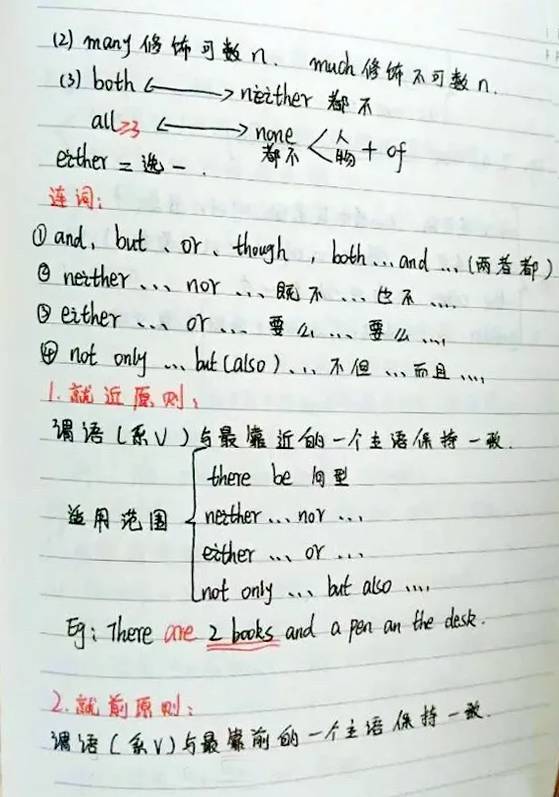 (2) many 修饰可数n. much 修饰不可数n.
(3) both ⟷ neither 都不
all≥3 ⟷ none 都不 < 人 物 + of
either = 选一.
连词:
① and, but、or、though, both...and...(两者都)
② neither...nor...既不...也不....
③ either...or...要么...要么....
④ not only...but(also)...不但...而且....
1.就近原则:
谓语(系V)与最靠近的一个主语保持一致.
适用范围
there be 句型
neither...nor...
either...or...
not only...but also....
Eg: There are 2 books and a pen an the desk.
2.就前原则:
谓语(系V)与最靠前的一个主语保持一致.